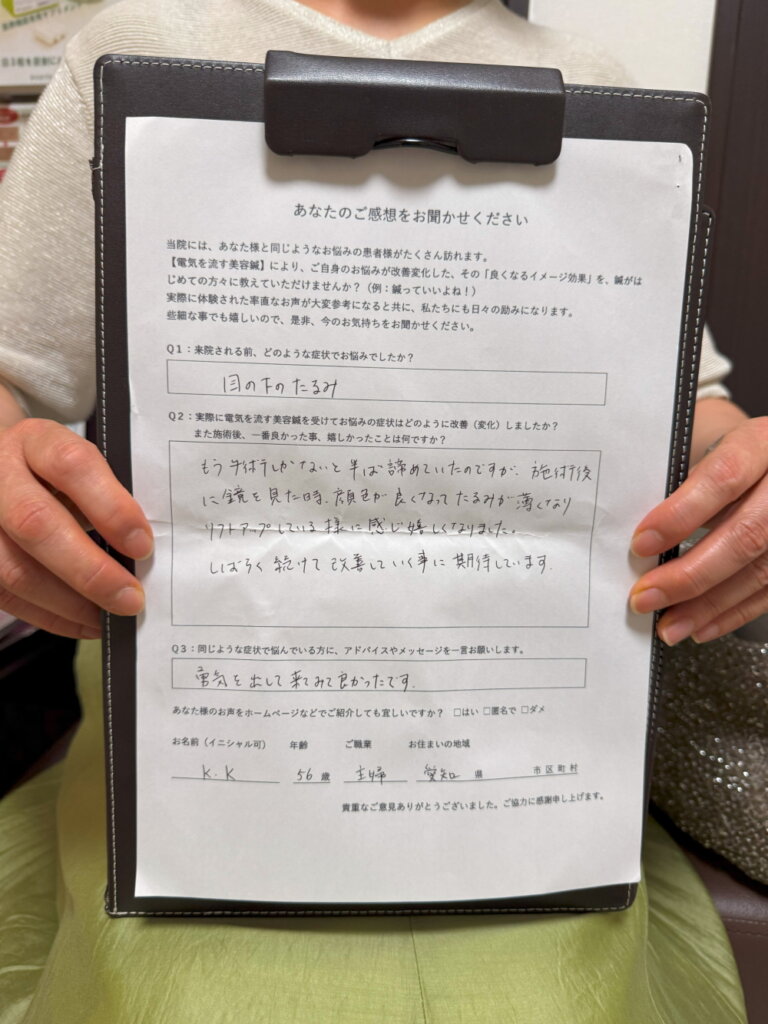 あなたのご感想をお聞かせください
当院には、あなた様と同じようなお悩みの患者様がたくさん訪れます。
【電気を流す美容鍼】により、ご自身のお悩みが改善変化した、その「良くなるイメージ効果」を、鍼がは
じめての方々に教えていただけませんか?(例:鍼っていいよね!)
実際に体験された率直なお声が大変参考になると共に、私たちにも日々の励みになります。
些細な事でも嬉しいので、是非、今のお気持ちをお聞かせください。
Q1:来院される前、どのような症状でお悩みでしたか?
目の下のたるみ
Q2:実際に電気を流す美容鍼を受けてお悩みの症状はどのように改善(変化)しましたか?
また施術後、一番良かった事、嬉しかったことは何ですか?
もう手術しかないと半ば諦めていたのですが、施術後
に鏡を見た時、顔色が良くなってたるみが薄くなり
リフトアップしている様に感じ嬉しくなりました。
しばらく続けて改善していく事に期待しています.
Q3:同じような症状で悩んでいる方に、アドバイスやメッセージを一言お願いします。
勇気を出して来てみて良かったです.
あなた様のお声をホームページなどでご紹介しても宜しいですか? □はい □匿名で □ダメ
お名前(イニシャル可) 年齢 ご職業 お住まいの地域
K.K 56歳 主婦 愛知県 市区町村
貴重なご意見ありがとうございました。ご協力に感謝申し上げます。